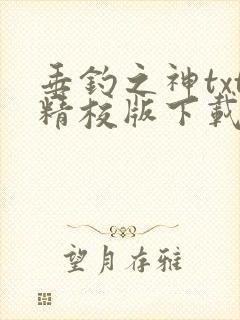 垂钓之神txt
精校版下载
望月存雅